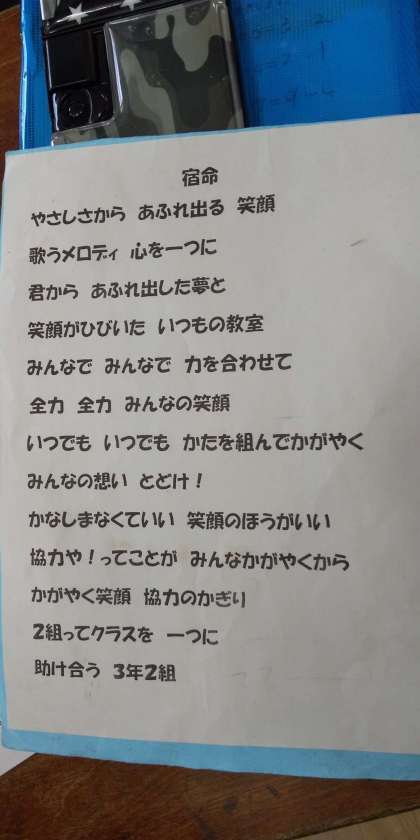 宿命
やさしさから あふれ出る 笑顔
歌うメロディ 心を一つに
君から あふれ出した夢と
笑顔がひびいた いつもの教室
みんなで みんなで 力を合わせて
全力 全力 みんなの笑顔
いつでも いつでも かたを組んでかがやく
みんなの想い とどけ！
かなしまなくていい 笑顔のほうがいい
協力や！ってことが みんなかがやくから
かがやく笑顔 協力のかぎり
2組ってクラスを 一つに
助け合う 3年2組